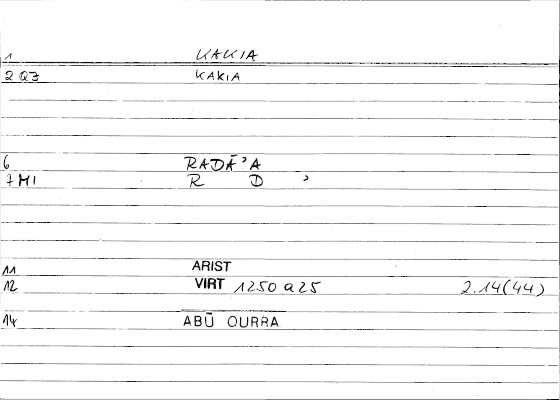 1 KAKIA
2 QJ KAKIA
6 RADĀʾA
7 MI R D ʾ
11 ARIST
12 VIRT 1250 a 25 2.14(44)
14 ABŪ QURRA